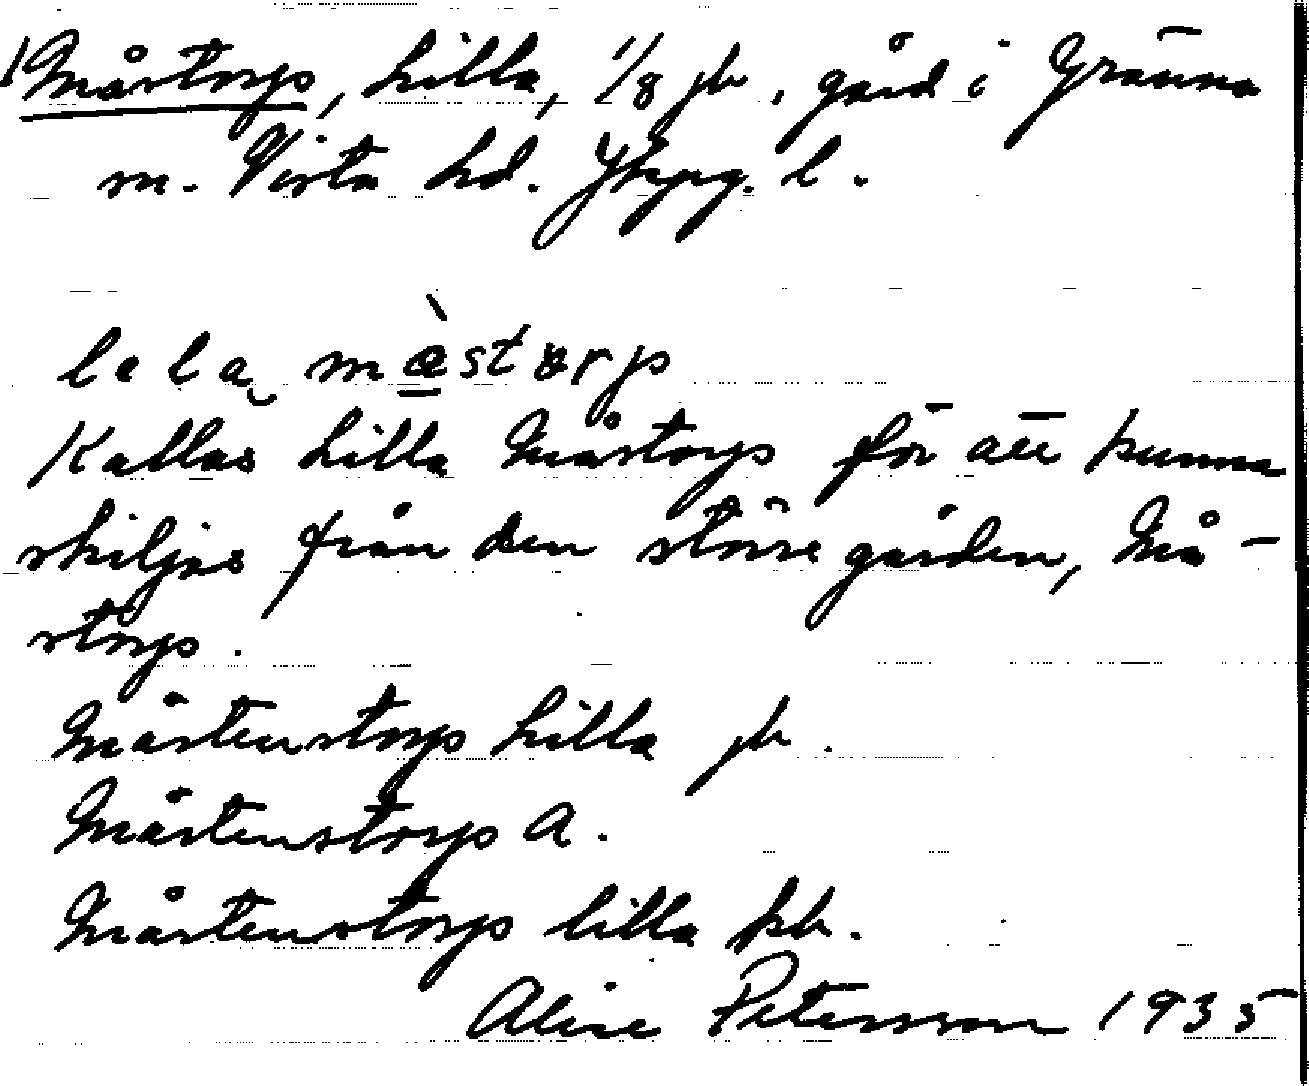 Måstorp, Lilla, 1/8 jb, gård i Gränna
m. Vista hd. Jkpg. l.
lela mæ̀storp
Kallas Lilla Måstorp för att kunna
skiljas från den större gården, Må-
storp.
Mårtenstorp Lilla jb.
Mårtenstorp A.
Mårtenstorp lilla kb.
Alice Petersson 1935